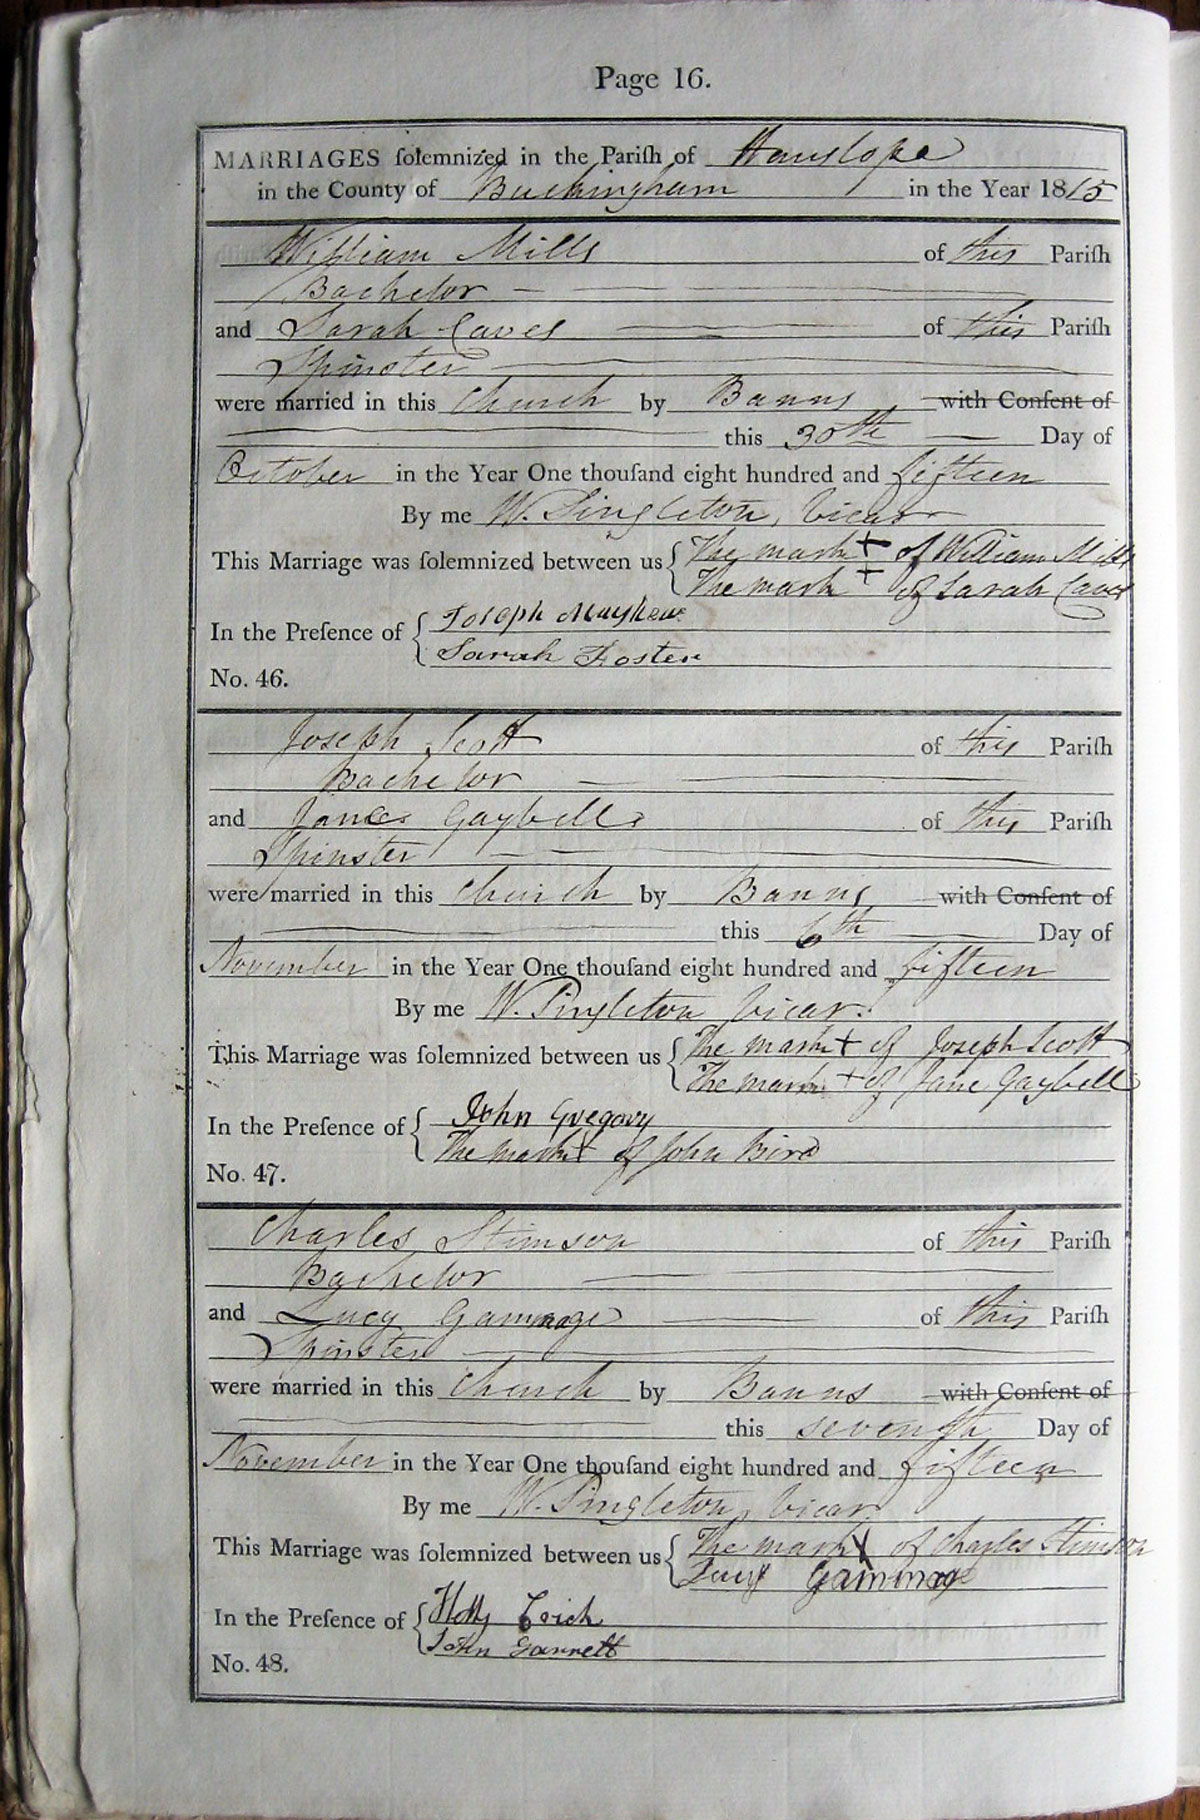 Page 16.
MARRIAGES ſolemnized in the Pariſh of Hanslope
in the County of Buckingham in the Year 1815
William Mills of this Pariſh
Bachelor
and Sarah Caves of this Pariſh
Spinster
were married in this Church by Banns with Conſent of
this 30th Day of
October in the Year One thouſand eight hundred and fifteen
By me W. Singleton, Vicar
This Marriage was ſolemnized between us The mark + of William Mills
The mark + of Sarah Caves
In the Preſence of Joseph Mayhew
Sarah Foster
No. 46.
Joseph Scott of this Pariſh
Bachelor
and Jane Gaybell of this Pariſh
Spinster
were married in this Church by Banns with Conſent of
this 6th Day of
November in the Year One thouſand eight hundred and fifteen
By me W. Singleton Vicar.
This Marriage was ſolemnized between us The mark + of Joseph Scott
The mark + of Jane Gaybell
In the Preſence of John Gregory
The mark + of John Bird
No. 47.
Charles Stimson of this Pariſh
Bachelor
and Lucy Gammage of this Pariſh
Spinster
were married in this Church by Banns with Conſent of
this seventh Day of
November in the Year One thouſand eight hundred and fifteen
By me W. Singleton, Vicar
This Marriage was ſolemnized between us The mark X of Charles Stimson
Lucy Gammage
In the Preſence of
John Garrett
No. 48.